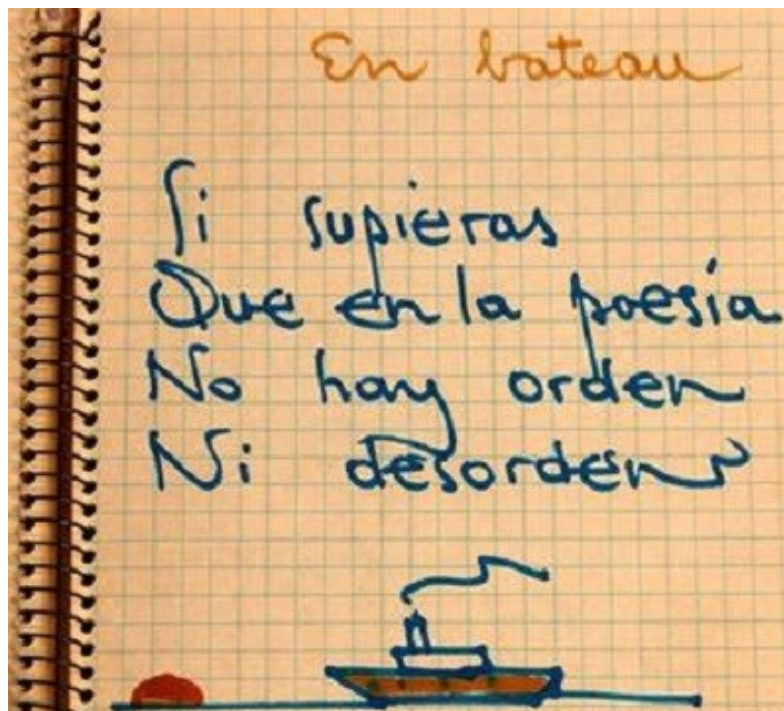 En bateau
Si supieras
Que en la poesía
No hay orden
Ni desorden